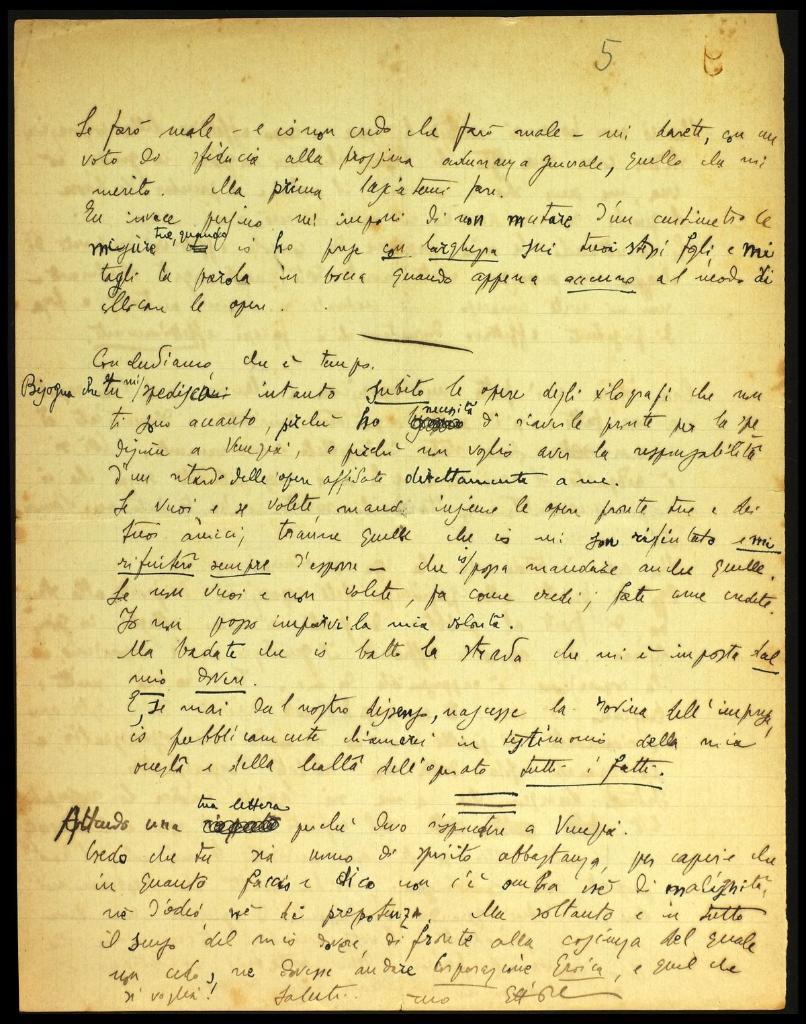 5
Se farò male – e io non credo che farò male – mi darete, con un
voto di sfiducia alla prossima adunanza generale, quello che mi
merito. Ma prima lasciatemi fare.
Tu invece perfino mi imponi di non mutare d'un centimetro le
misure tue, quando io ho preso con larghezza sui tuoi stessi fogli e mi
tagli la parola in bocca quando appena accenno al modo di
collocare le opere.
Concludiamo che è tempo.
Bisogna che tu mi spedisca intanto subito le opere degli xilografi che non
ti sono accanto, perchè ho necessità di riaverle pronte per la spe
dizione a Venezia, e perchè non voglio aver la responsabilità
d'un ritardo delle opere affidate direttamente a me.
Se vuoi e se volete, manda insieme le opere pronte tue e dei
tuoi amici, tranne quelle che io mi son rifiutato e mi
rifiuterò sempre d'esporre – che io possa mandare anche quelle.
Se non vuoi e non volete, fa come credi; fate come credete.
Io non posso imporvi la mia volontà.
Ma badate che io batto la strada che mi è imposta dal
mio dovere.
E, se mai dal nostro dissenso, nascesse la rovina dell'impresa,
io pubblicamente chiamerei in testimonio della mia
onestà e della lealtà dell'operato tutti i fatti.
Attendo una tua lettera perchè devo rispondere a Venezia.
Credo che tu sia uomo di spirito abbastanza, per capire che
in quanto faccio e dico non c'è ombra nè di malignità,
nè d'odio nè di prepotenza. Ma soltanto e in tutto
il senso del mio dovere, di fronte alla coscienza del quale
non cedo, ne dovesse andare Corporazione Eroica, e quel che
si voglia! Saluti. tuo Ettore